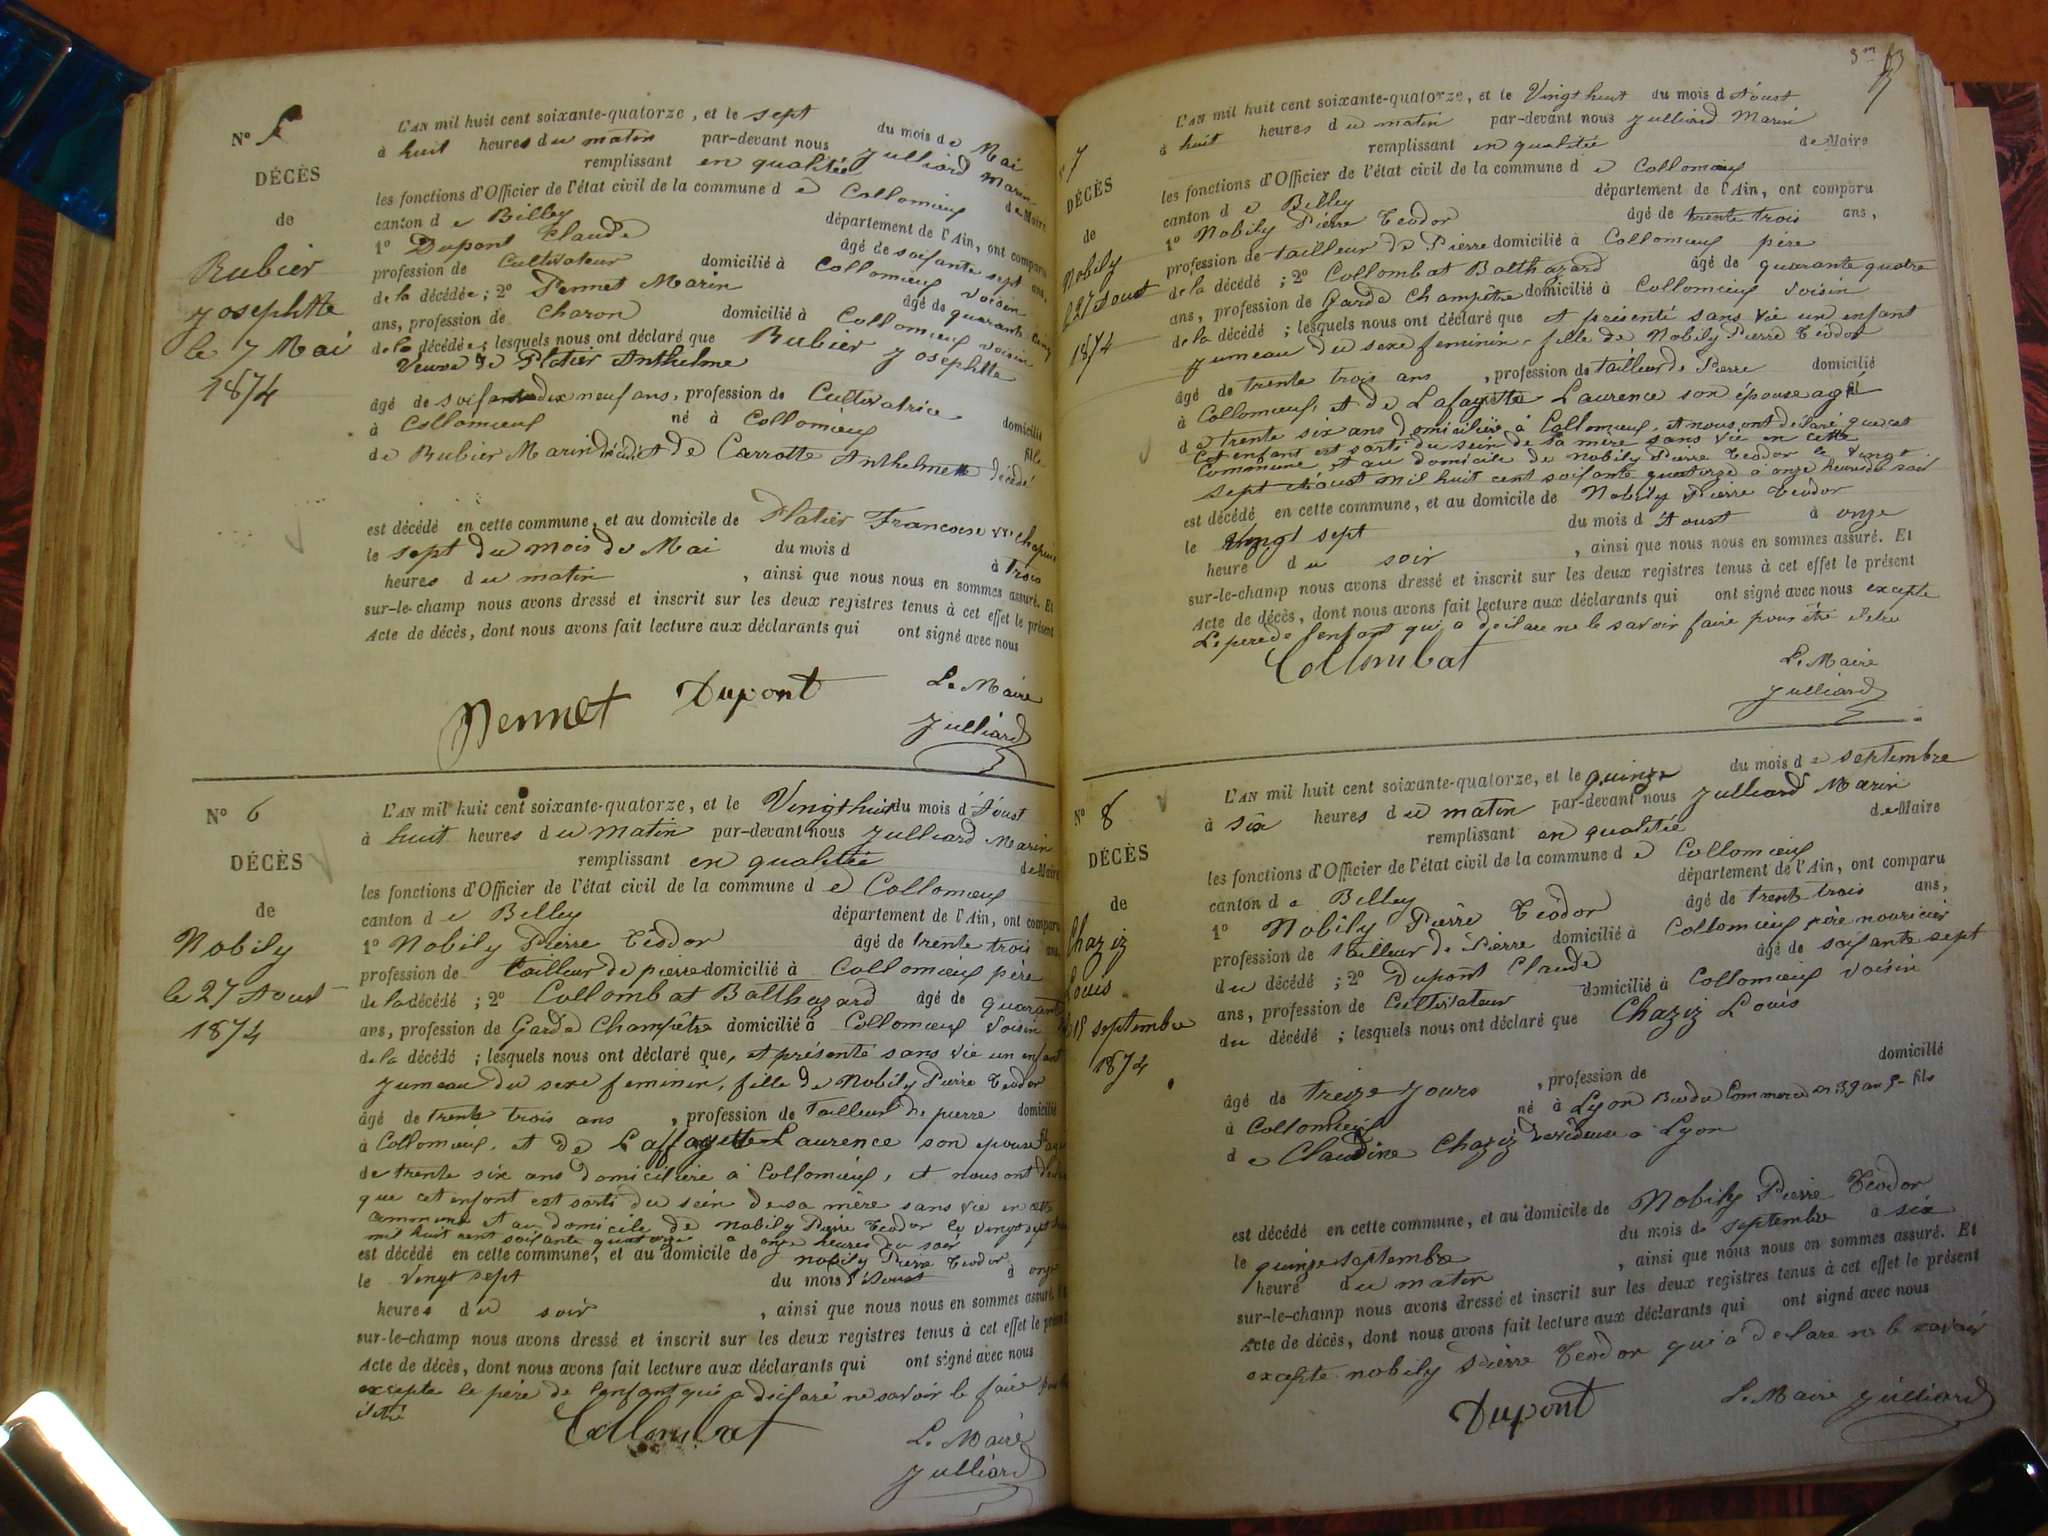 N° 5
DÉCÈS
de
Rubier
Josephtte
le 7 Mai
1874
L'AN mil huit cent soixante-quatorze, et le sept du mois de Mai
à huit heures du matin par-devant nous Julliard Marin
remplissant en qualitée de Maire
les fonctions d'Officier de l'état civil de la commune d e Collomieux
canton d e Billey département de l'Ain, ont comparu
1° Dupont Claude âgé de soifante sept ans,
profession de Cultivateur domicilié à Collomieux voisin
de la décédée; 2° Pennet Marin âgé de quarante cinq
ans, profession de Charon domicilié à Collomieux voisin
de la décédée; lesquels nous ont déclaré que Rubier Josephtte
Veuve de Platier Anthelme
âgé de soifante dix neuf ans, profession de Cultivatrice domicilié
à Collomieux né à Collomieux fille
de Rubier Marin décédé et de Carrotte Anthelmette décédé
est décédé en cette commune, et au domicile de Platier Francoise vve
le sept du mois de Mai du mois d à trois
heures du matin , ainsi que nous nous en sommes assuré. Et
sur-le-champ nous avons dressé et inscrit sur les deux registres tenus à cet effet le présent
Acte de décès, dont nous avons fait lecture aux déclarants qui ont signé avec nous
Pennet Dupont Le Maire
Julliard
N° 6
DÉCÈS
de
Nobily
le 27 Aout
1874
L'AN mil huit cent soixante-quatorze, et le Vingt huit du mois d'Aoust
à huit heures du matin par-devant nous Julliard Marin
remplissant en qualitée de Maire
les fonctions d'Officier de l'état civil de la commune d e Collomieux
canton d e Belley département de l'Ain, ont comparu
1° Nobily Pierre Téodor âgé de trente trois ans,
profession de tailleur de pierre domicilié à Collomieux père
de la décédé; 2° Collombat Balthazard âgé de quarante
ans, profession de Garde Champêtre domicilié à Collomieux voisin
de la décédé; lesquels nous ont déclaré que, et présenté sans vie un enfant
jumeau du sexe feminin, fille de Nobily Pierre Téodor
âgé de trente trois ans , profession de Tailleur de pierre domicilié
à Collomieux, et de Laffayette Laurence son epouse agé
de trente six ans domiciliére à Collomieux, et nous ont
que cet enfant est sorti du sein de sa mère sans vie en cette
commune et au domicile de Nobily Pierre Téodor le vingt sept
mil huit cent soifante quatorze a onze heures du soir
est décédé en cette commune, et au domicile de Nobily Pierre Téodor
le vingt sept du mois d'Aoust à onze
heures du soir , ainsi que nous nous en sommes assuré. Et
sur-le-champ nous avons dressé et inscrit sur les deux registres tenus à cet effet le présent
Acte de décès, dont nous avons fait lecture aux déclarants qui ont signé avec nous
excepte le père de l'enfant qui a déclaré ne savoir le faire
Collombat Le Maire
Julliard
3
7
DÉCÈS
de
Nobily
27 Aoust
1874
L'AN mil huit cent soixante-quatorze, et le Vingt huit du mois d'Aoust
à huit heures du matin par-devant nous Julliard Marin
remplissant en qualitée de Maire
les fonctions d'Officier de l'état civil de la commune d e Collomieux
canton d e Billey département de l'Ain, ont comparu
1° Nobily Pierre Teodor âgé de trente trois ans,
profession de tailleur de Pierre domicilié à Collomieux père
de la décédé; 2° Collombat Balthazard âgé de quarante quatre
ans, profession de Garde Champêtre domicilié à Collomieux voisin
de la décédé; lesquels nous ont déclaré que et présenté sans vie un enfant
jumeau du sexe feminin, fille de Nobily Pierre Téodor
âgé de trente trois ans , profession de tailleur de Pierre domicilié
à Collomieux, et de Lafayette Laurence son épouse agé
de trente six ans domicilière à Collomieux, et nous ont declaré que cet
Cet enfant est sorti du sein de sa mère sans vie en cette
Commune et au domicile de Nobily Pierre Teodor le vingt
sept Aoust mil huit cent soifante quatorze a onze heures du soir
est décédé en cette commune, et au domicile de Nobily Pierre Téodor
le vingt sept du mois d'Aoust à onze
heure du soir , ainsi que nous nous en sommes assuré. Et
sur-le-champ nous avons dressé et inscrit sur les deux registres tenus à cet effet le présent
Acte de décès, dont nous avons fait lecture aux déclarants qui ont signé avec nous excepte
Le pere de l'enfant qui a déclare ne le savoir faire pour
Collombat Le Maire
Julliard
N° 8
DÉCÈS
de
Chaziz
Louis
15 septembre
1874
L'AN mil huit cent soixante-quatorze, et le quinze du mois d e septembre
à six heures du matin par-devant nous Julliard Marin
remplissant en qualitée de Maire
les fonctions d'Officier de l'état civil de la commune d e Collomieux
canton d e Billey département de l'Ain, ont comparu
1° Nobily Pierre Téodor âgé de trente trois ans,
profession de tailleur de Pierre domicilié à Collomieux père nouricier
du décédé; 2° Dupont Claude âgé de soifante sept
ans, profession de Cultivateur domicilié à Collomieux voisin
du décédé; lesquels nous ont déclaré que Chaziz Louis
âgé de treize jours , profession de domicilié
à Collomieux né à Lyon Rue du Commerce n 39 au 5e fils
d e Claudine Chaziz a Lyon
est décédé en cette commune, et au domicile de Nobily Pierre Teodor
le quinze septembre du mois de septembre à six
heure du matin , ainsi que nous nous en sommes assuré. Et
sur-le-champ nous avons dressé et inscrit sur les deux registres tenus à cet effet le présent
Acte de décès, dont nous avons fait lecture aux déclarants qui ont signé avec nous
excepte nobily Pierre Teodor qui a declare ne le savoir
Dupont Le Maire Julliard